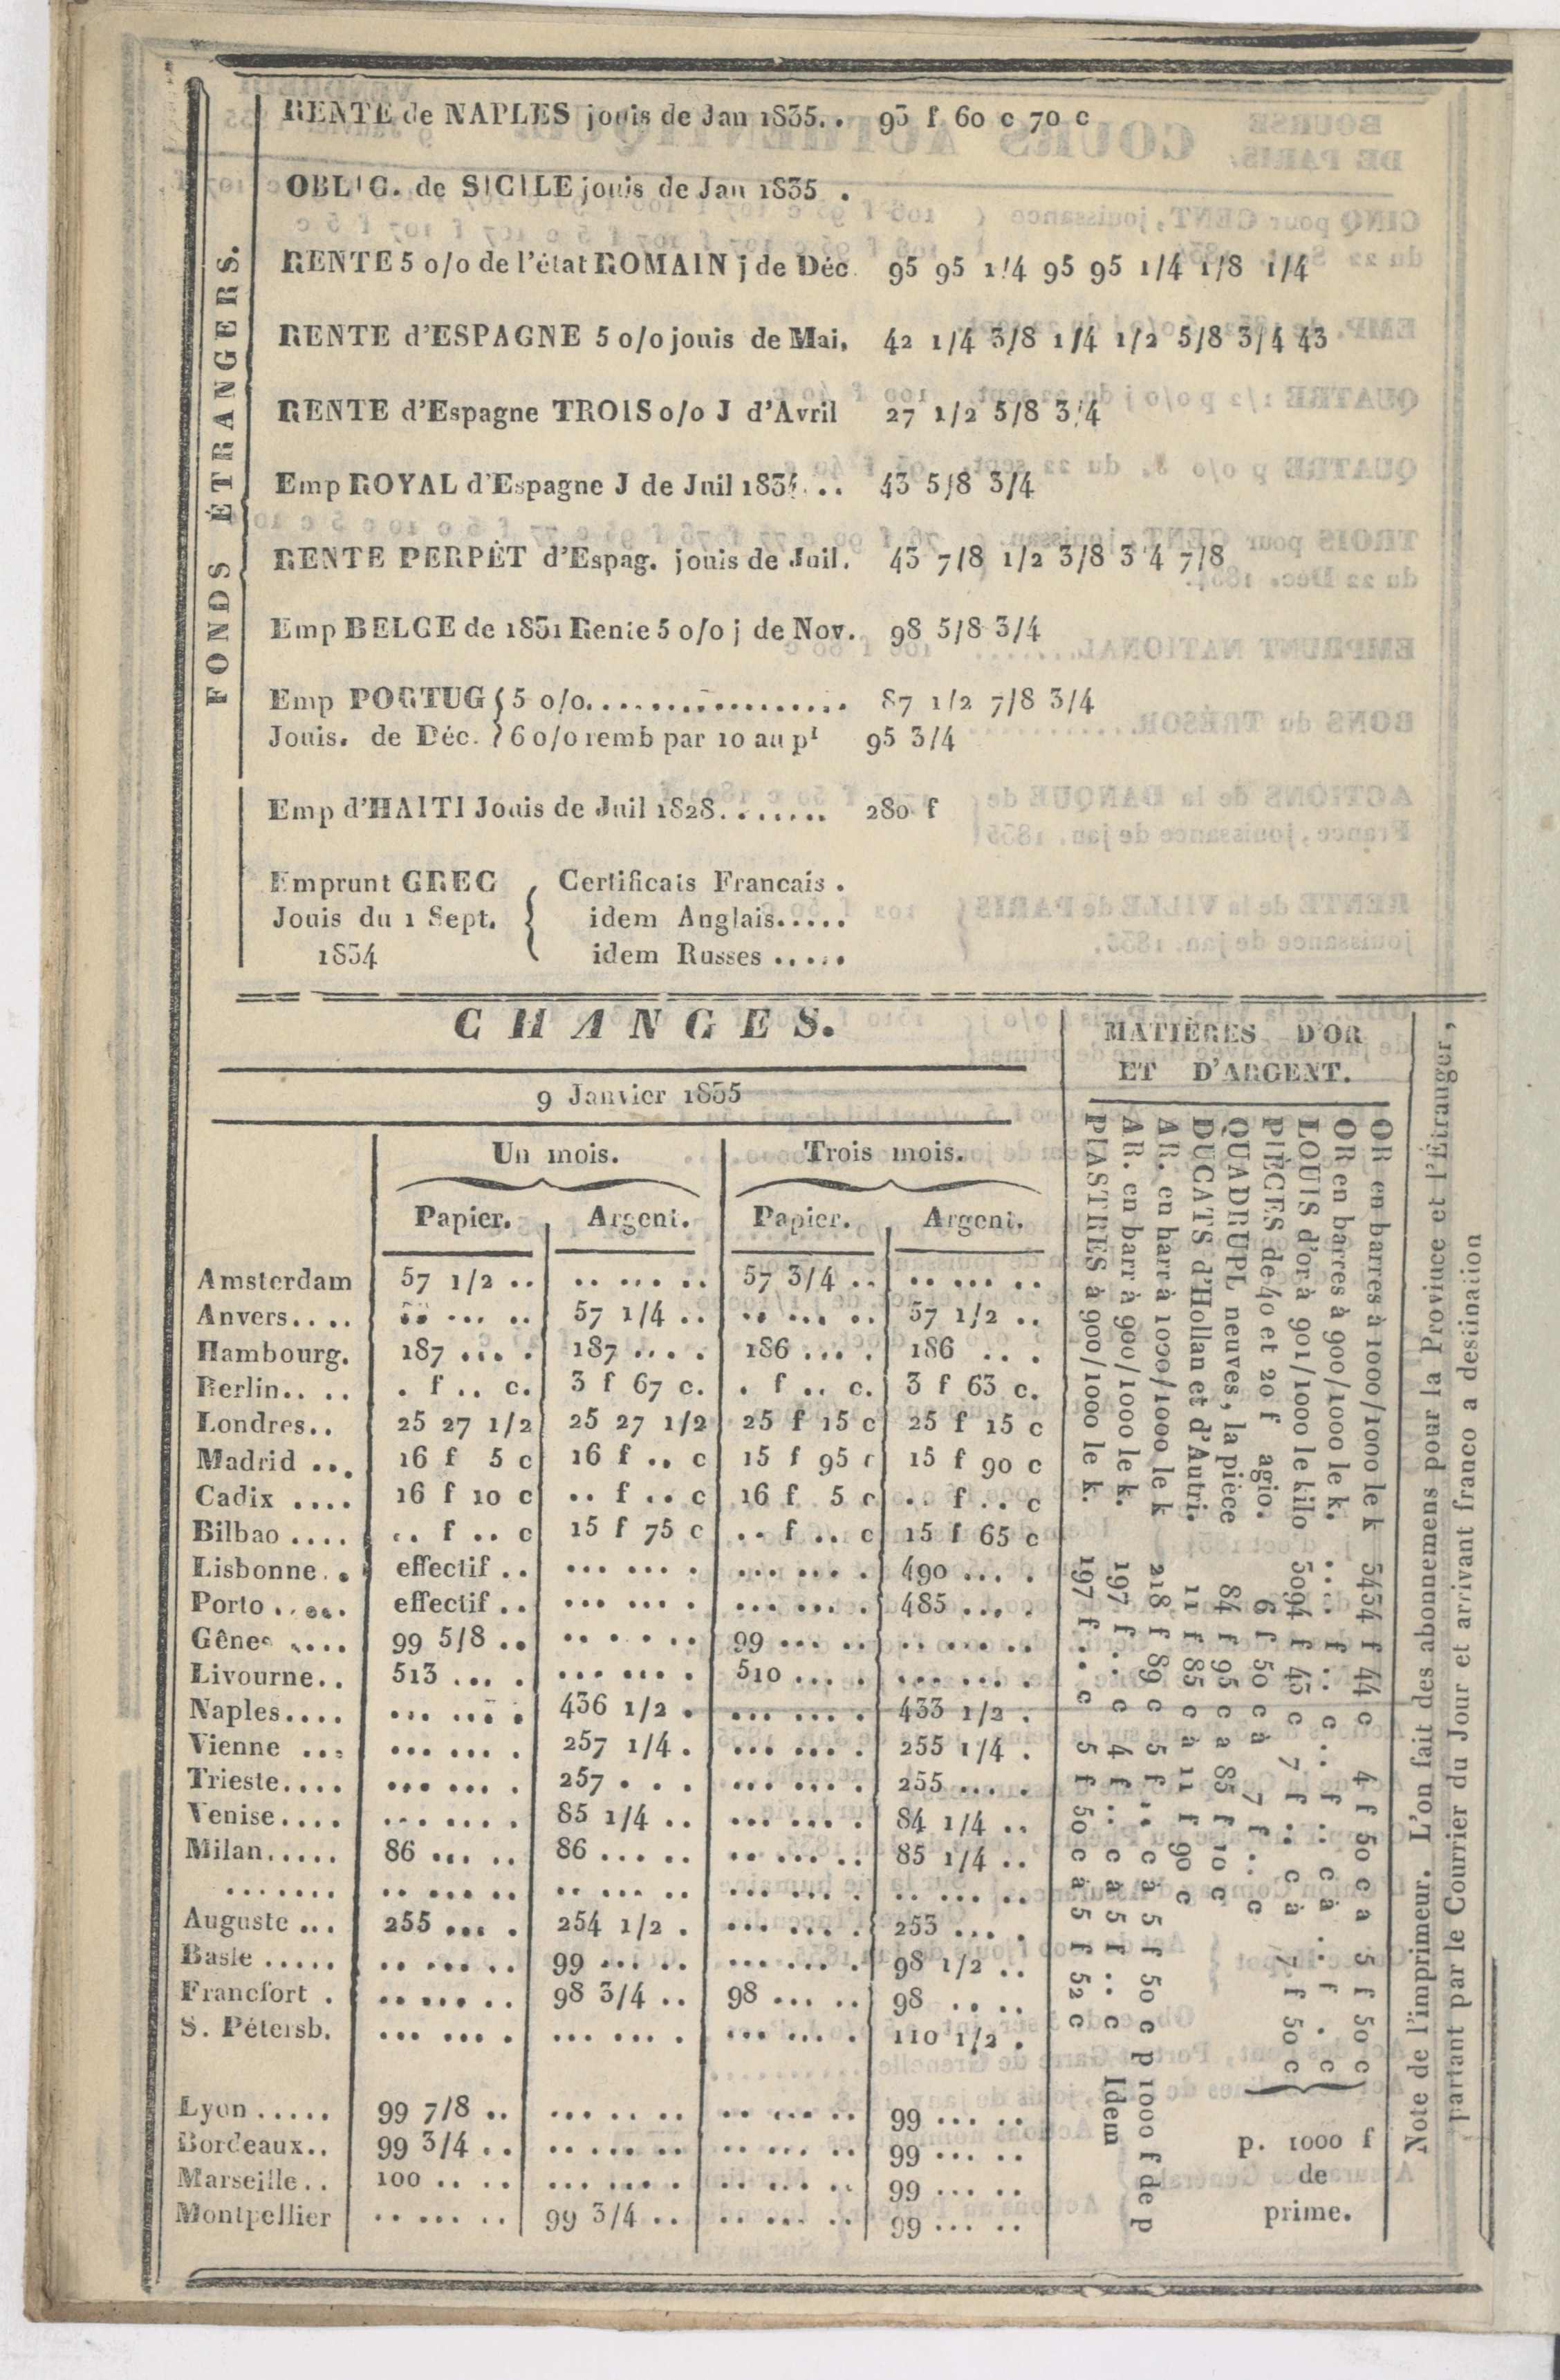 FONDS ÉTRANGERS.
RENTE de NAPLES jouis de Jan 1835.. 93 f 60 c 70 c
OBLIG. de SICILE jouis de Jan 1835 .
RENTE 5 o/o de l'état ROMAIN j de Déc. 95 95 1/4 95 95 1/4 1/8 1/4
RENTE d'ESPAGNE 5 o/o jouis de Mai. 42 1/4 3/8 1/4 1/2 5/8 3/4 43
RENTE d'Espagne TROIS o/o J d'Avril 27 1/2 5/8 3/4
Emp ROYAL d'Espagne J de Juil 1834... 43 5/8 3/4
RENTE PERPÉT d'Espag. jouis de Juil. 43 7/8 1/2 3/8 3/4 7/8
Emp BELGE de 1831 Rente 5 o/o j de Nov. 98 5/8 3/4
Emp PORTUG { 5 o/o.................. 87 1/2 7/8 3/4
Jouis. de Déc. } 6 o/o remb par 10 au pr 95 3/4
Emp d'HAITI Jouis de Juil 1828....... 280 f
Emprunt GREC { Certificats Francais .
Jouis du 1 Sept. idem Anglais.....
1834 idem Russes .....
CHANGES.
9 Janvier 1835
Un mois. Trois mois.
Papier. Argent. Papier. Argent.
Amsterdam 57 1/2 .. .. ... .. 57 3/4 .. .. ... ..
Anvers.... .. ... .. 57 1/4 .. .. ... .. 57 1/2 ..
Hambourg. 187 ... . 187 ... . 186 ... . 186 ... .
Berlin.. .. . f .. c. 3 f 67 c. . f .. c. 3 f 63 c.
Londres.. 25 27 1/2 25 27 1/2 25 f 15 c 25 f 15 c
Madrid ... 16 f 5 c 16 f .. c 15 f 95 c 15 f 90 c
Cadix .... 16 f 10 c .. f .. c 16 f 5 c .. f .. c
Bilbao .... .. f .. c 15 f 75 c .. f .. c 15 f 65 c
Lisbonne.. effectif .. ... ... . ... ... . 490 ... .
Porto ..... effectif .. ... ... . ... ... . 485 ... .
Gênes .... 99 5/8 .. .. . . .. 99 ... .. .. ... ..
Livourne.. 513 ... . ... ... . 510 ... . ... ... .
Naples.... ... ... . 436 1/2 . ... ... . 433 1/2 .
Vienne ... ... ... . 257 1/4 . ... ... . 255 1/4 .
Trieste.... ... ... . 257 . . . ... ... . 255 ... .
Venise.... ... ... . 85 1/4 .. ... ... . 84 1/4 ..
Milan..... 86 ... .. 86 ... .. .. ... .. 85 1/4 ..
....... .. ... .. .. ... .. ... ... . .. ... ..
Auguste ... 255 ... . 254 1/2 . ... ... . 253 ... .
Basle ..... .. ... .. 99 ... .. ... ... . 98 1/2 ..
Francfort . .. ... .. 98 3/4 .. 98 ... .. 98 .. ..
S. Pétersb. ... ... . ... ... . ... ... . 110 1/2 .
Lyon ..... 99 7/8 .. ... .. .. .. ... .. 99 ... ..
Bordeaux.. 99 3/4 .. .. ... .. .. ... .. 99 ... ..
Marseille.. 100 .. .. ... ... . .. ... .. 99 ... ..
Montpellier .. ... .. 99 3/4 .. .. ... .. 99 ... ..
MATIÈRES D'OR
ET D'ARGENT.
OR en barres à 1000/1000 le k 3434 f 44 c 4 f 50 c a 5 f 50 c
OR en barres à 900/1000 le k. .... f .. c .. f .. c à .. f . c
LOUIS d'or à 901/1000 le kilo 3094 f 43 c 7 f .. c à 7 f 50 c
PIÈCES de 40 et 20 f agio. 6 f 50 c à 7 f .. c
QUADRUPL neuves, la pièce 84 f 95 c a 85 f 10 c
DUCATS d'Hollan et d'Autri. 11 f 85 c à 11 f 90 c
AR. en barr à 1000/1000 le k 218 f 89 c 5 f .. c à 5 f 50 c p 1000 f de p
AR. en barr à 900/1000 le k. 197 f .. c 4 f .. c à 5 f .. c Idem
PIASTRES à 900/1000 le k. 197 f .. c 5 f 50 c à 5 f 52 c
p. 1000 f
de
prime.
Note de l'imprimeur. L'on fait des abonnemens pour la Province et l'Étrauger,
partant par le Courrier du Jour et arrivant franco a destination